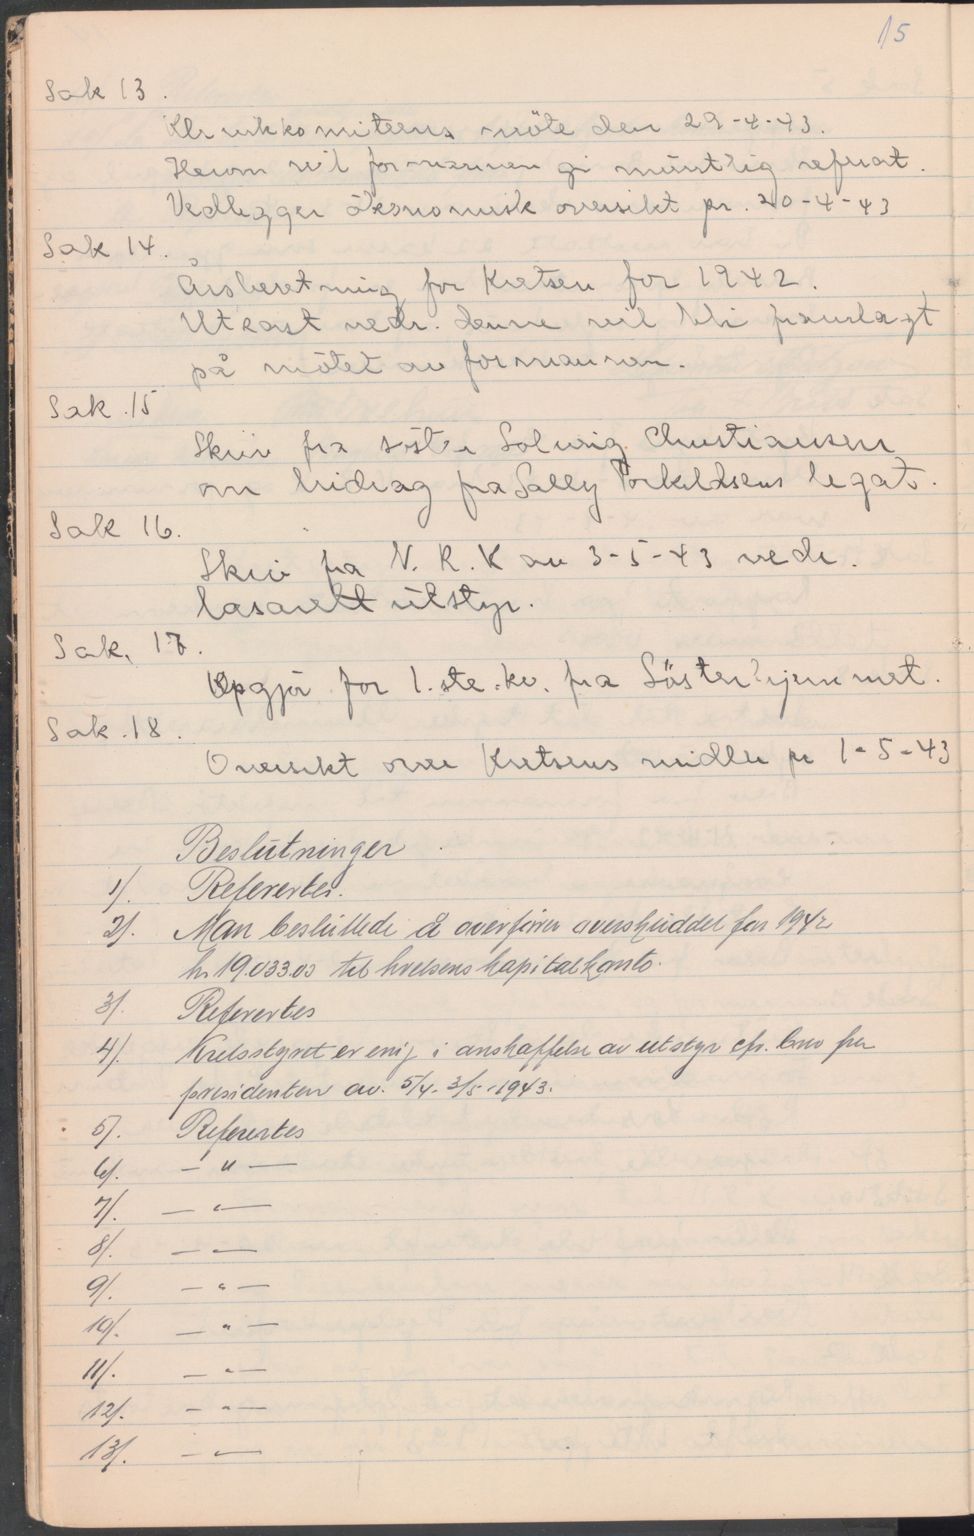 15
Sak 13.
Klinikkomiteens möte den 29-4-43.
Herom vil formannen gi muntlig referat.
Vedlegger ökonomisk oversikt pr. 20-4-43
Sak 14.
Årsberetning for Kretsen for 1942.
Utkast vedr. denne vil bli framlagt
på mötet av formannen.
Sak .15
Skriv fra söster Solveig Christiansen
om bidrag fra Sally Torkildsens legat.
Sak 16.
Skriv fra N.R.K av 3-5-43 vedr.
lasarett utstyr.
Sak, 17.
Opgjör for 1.ste.kv. fra Sösterhjemmet.
Sak .18.
Oversikt over Kretsens midler pr 1-5-43
Beslutninger
1/. Referertes.
2/. Man besluttede å overföre overskuddet for 1942
kr 19.033.03 til kretsens kapitalkonto.
3/. Referertes
4/. Kretsstyret er enig i anskaffelse av utstyr cfr. brev fra
presidenten av. 5/4. 3/5.-1943.
5/. Referertes
6/. — " —
7/. — " —
8/. — " —
9/. — " —
10/. — " —
11/. — " —
12/. — " —
13/. — " —